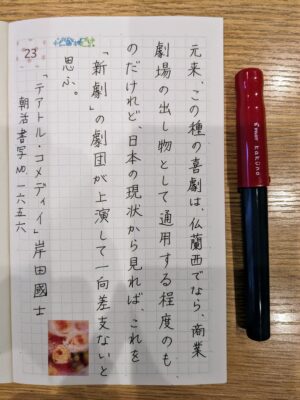 元来、この種の喜劇は、仏蘭西でなら、商業
劇場の出し物として通用する程度のも
のだけれど、日本の現状から見れば、これを
「新劇」の劇団が上演して一向差支ないと
思ふ。
23
「テアトル・コメディイ」岸田國士
朝活書写 NO.一六五六
PILOT kakuno